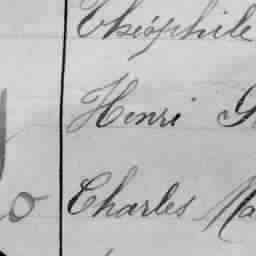 Théophile
Henri
Charles Ma